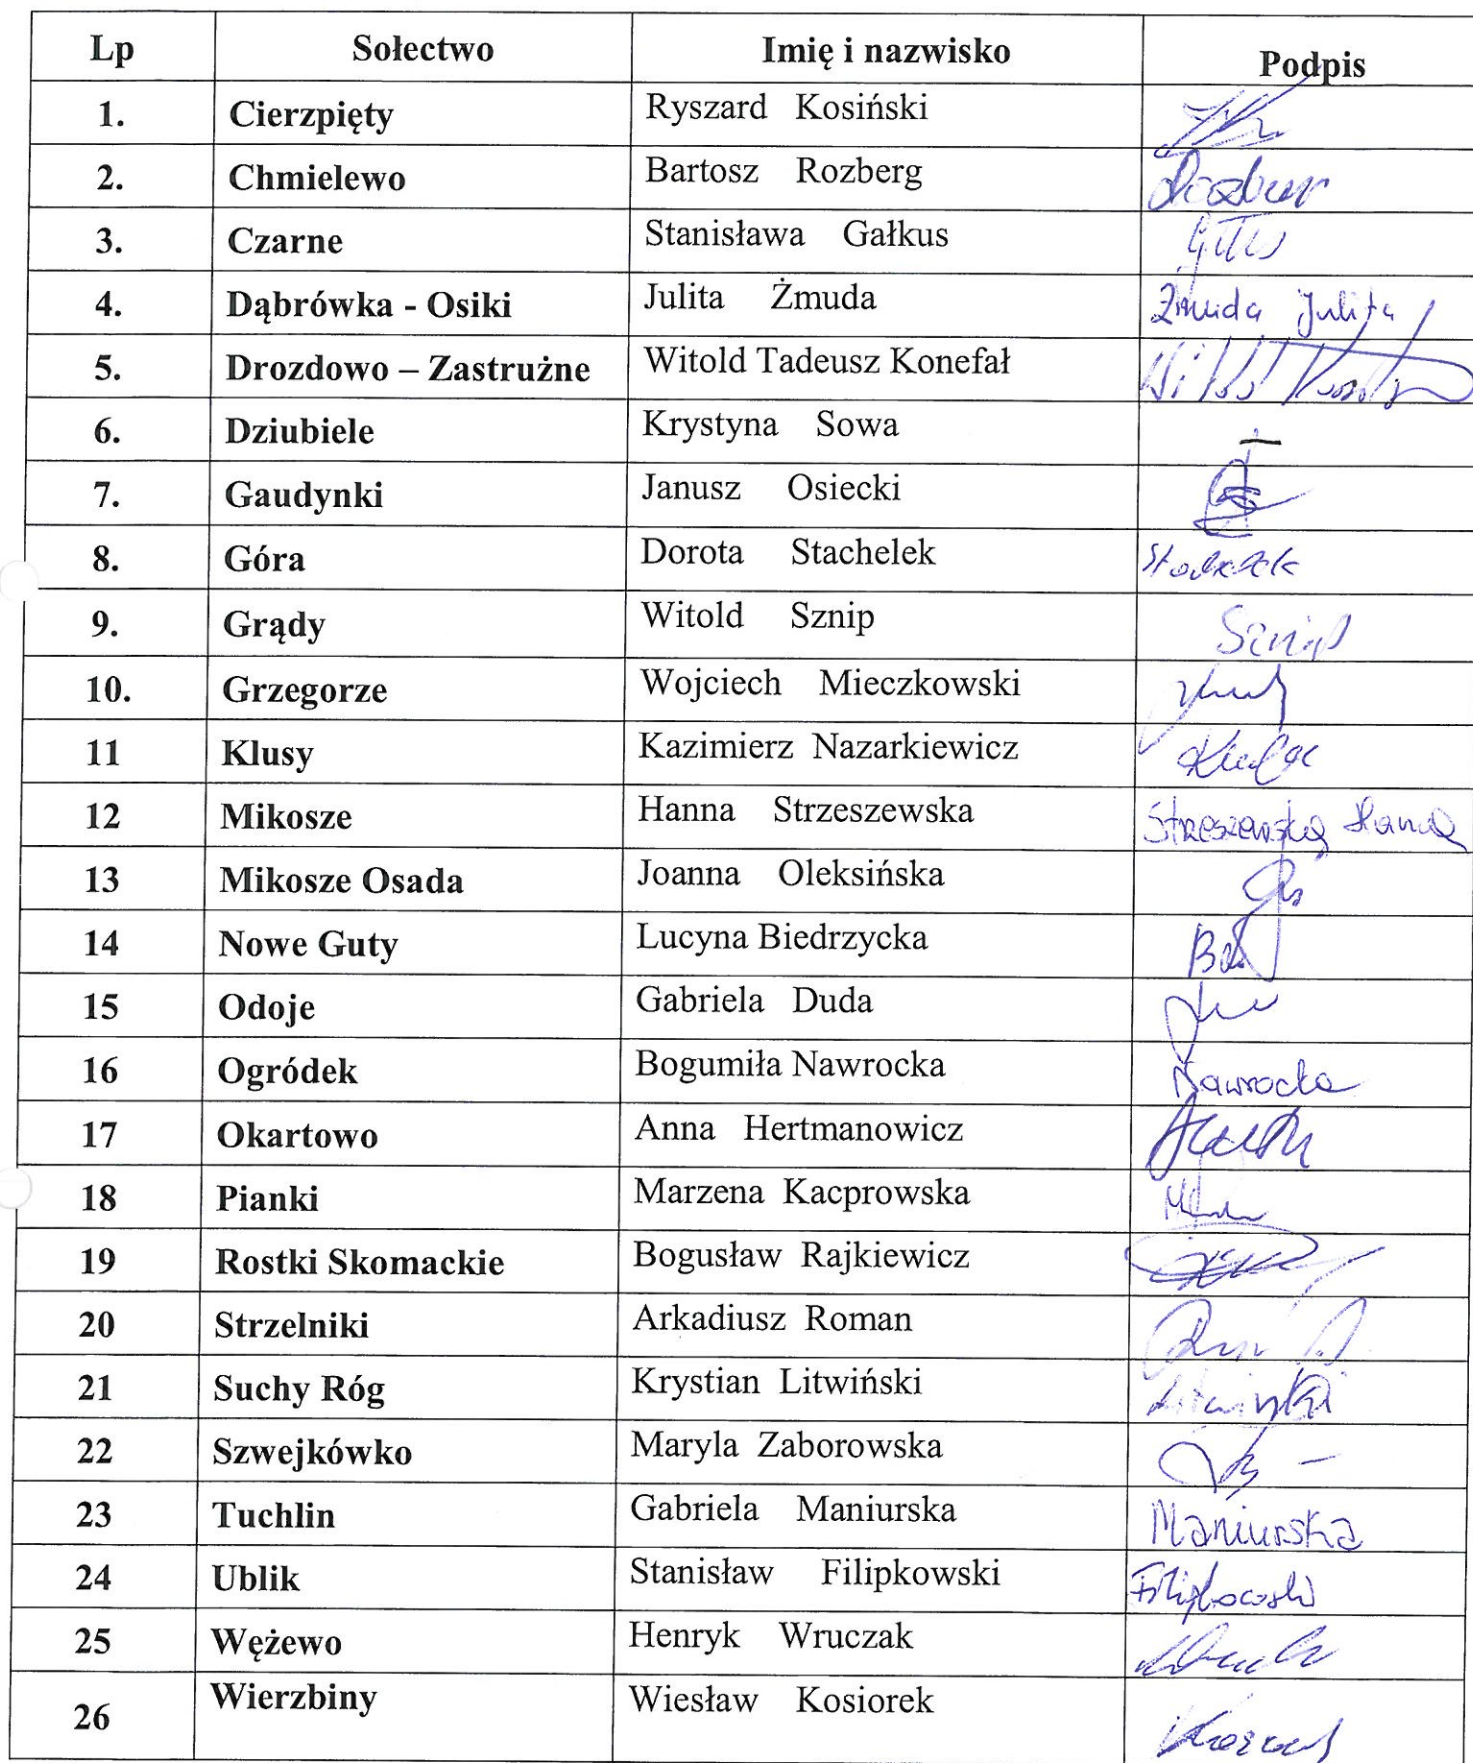 Lp Sołectwo Imię i nazwisko Podpis
1. Cierzpięty Ryszard Kosiński
2. Chmielewo Bartosz Rozberg
3. Czarne Stanisława Gałkus
4. Dąbrówka - Osiki Julita Żmuda Żmuda Julita
5. Drozdowo – Zastrużne Witold Tadeusz Konefał
6. Dziubiele Krystyna Sowa –
7. Gaudynki Janusz Osiecki
8. Góra Dorota Stachelek Stachelek
9. Grądy Witold Sznip Sznip
10. Grzegorze Wojciech Mieczkowski
11 Klusy Kazimierz Nazarkiewicz
12 Mikosze Hanna Strzeszewska Streszewska Hanna
13 Mikosze Osada Joanna Oleksińska
14 Nowe Guty Lucyna Biedrzycka
15 Odoje Gabriela Duda
16 Ogródek Bogumiła Nawrocka Nawrocka
17 Okartowo Anna Hertmanowicz
18 Pianki Marzena Kacprowska
19 Rostki Skomackie Bogusław Rajkiewicz
20 Strzelniki Arkadiusz Roman
21 Suchy Róg Krystian Litwiński Litwiński
22 Szwejkówko Maryla Zaborowska
23 Tuchlin Gabriela Maniurska Maniurska
24 Ublik Stanisław Filipkowski Filipkowski
25 Wężewo Henryk Wruczak
26 Wierzbiny Wiesław Kosiorek